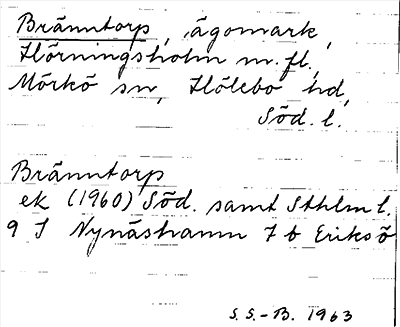 Bränntorp, ägomark,
Hörningsholm m. fl.,
Mörkö sn, Hölebo hd,
Söd. l.
Bränntorp
ek (1960) Söd. samt Sthlm l.
9 I Nynäshamn 7 b Eriksö
S.S.-B. 1963